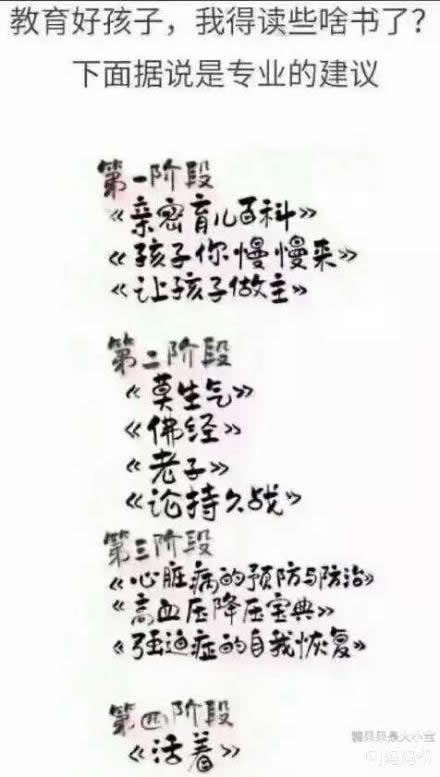 教育好孩子，我得读些啥书了？
下面据说是专业的建议
第一阶段
《亲密育儿百科》
《孩子你慢慢来》
《让孩子做主》
第二阶段
《莫生气》
《佛经》
《老子》
《论持久战》
第三阶段
《心脏病的预防与防治》
《高血压降压宝典》
《强迫症的自我恢复》
第四阶段
《活着》